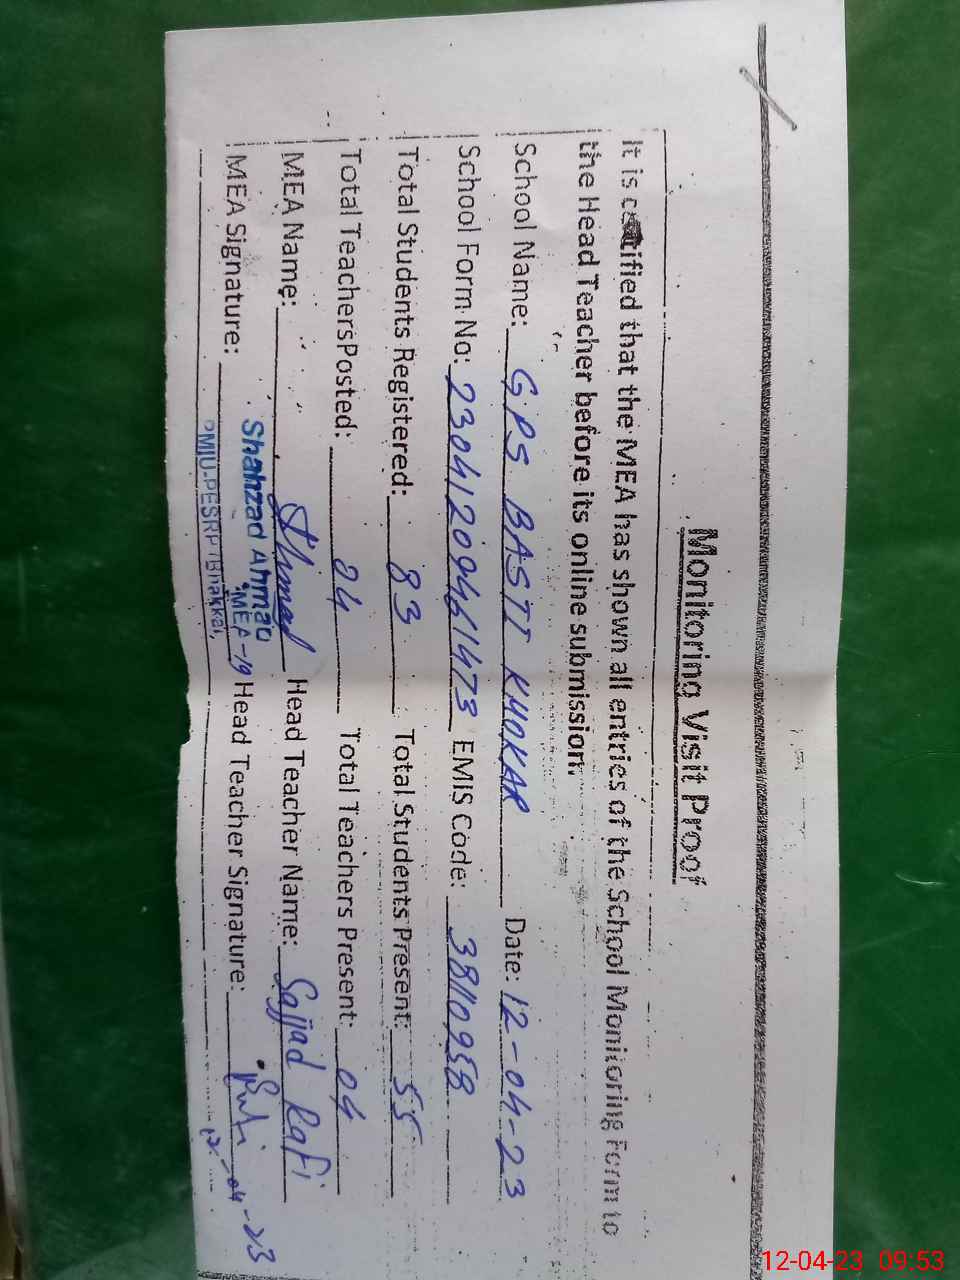 Monitoring Visit Proof
It is certified that the MEA has shown all entries of the School Monitoring Form to
the Head Teacher before its online submission.
School Name: GPS BASTI KHOKAR Date: 12-04-23
School Form No: 230412094461473 EMIS Code: 38110958
Total Students Registered: 83 Total Students Present: 55
Total TeachersPosted: 04 Total Teachers Present: 04
MEA Name: Head Teacher Name: Sajjad Rafi
MEA Signature: Shahzad Ahmad Head Teacher Signature:
MEA-19
PMIU-PESRP (Bhakkar)
12-04-23
12-04-23 09:53